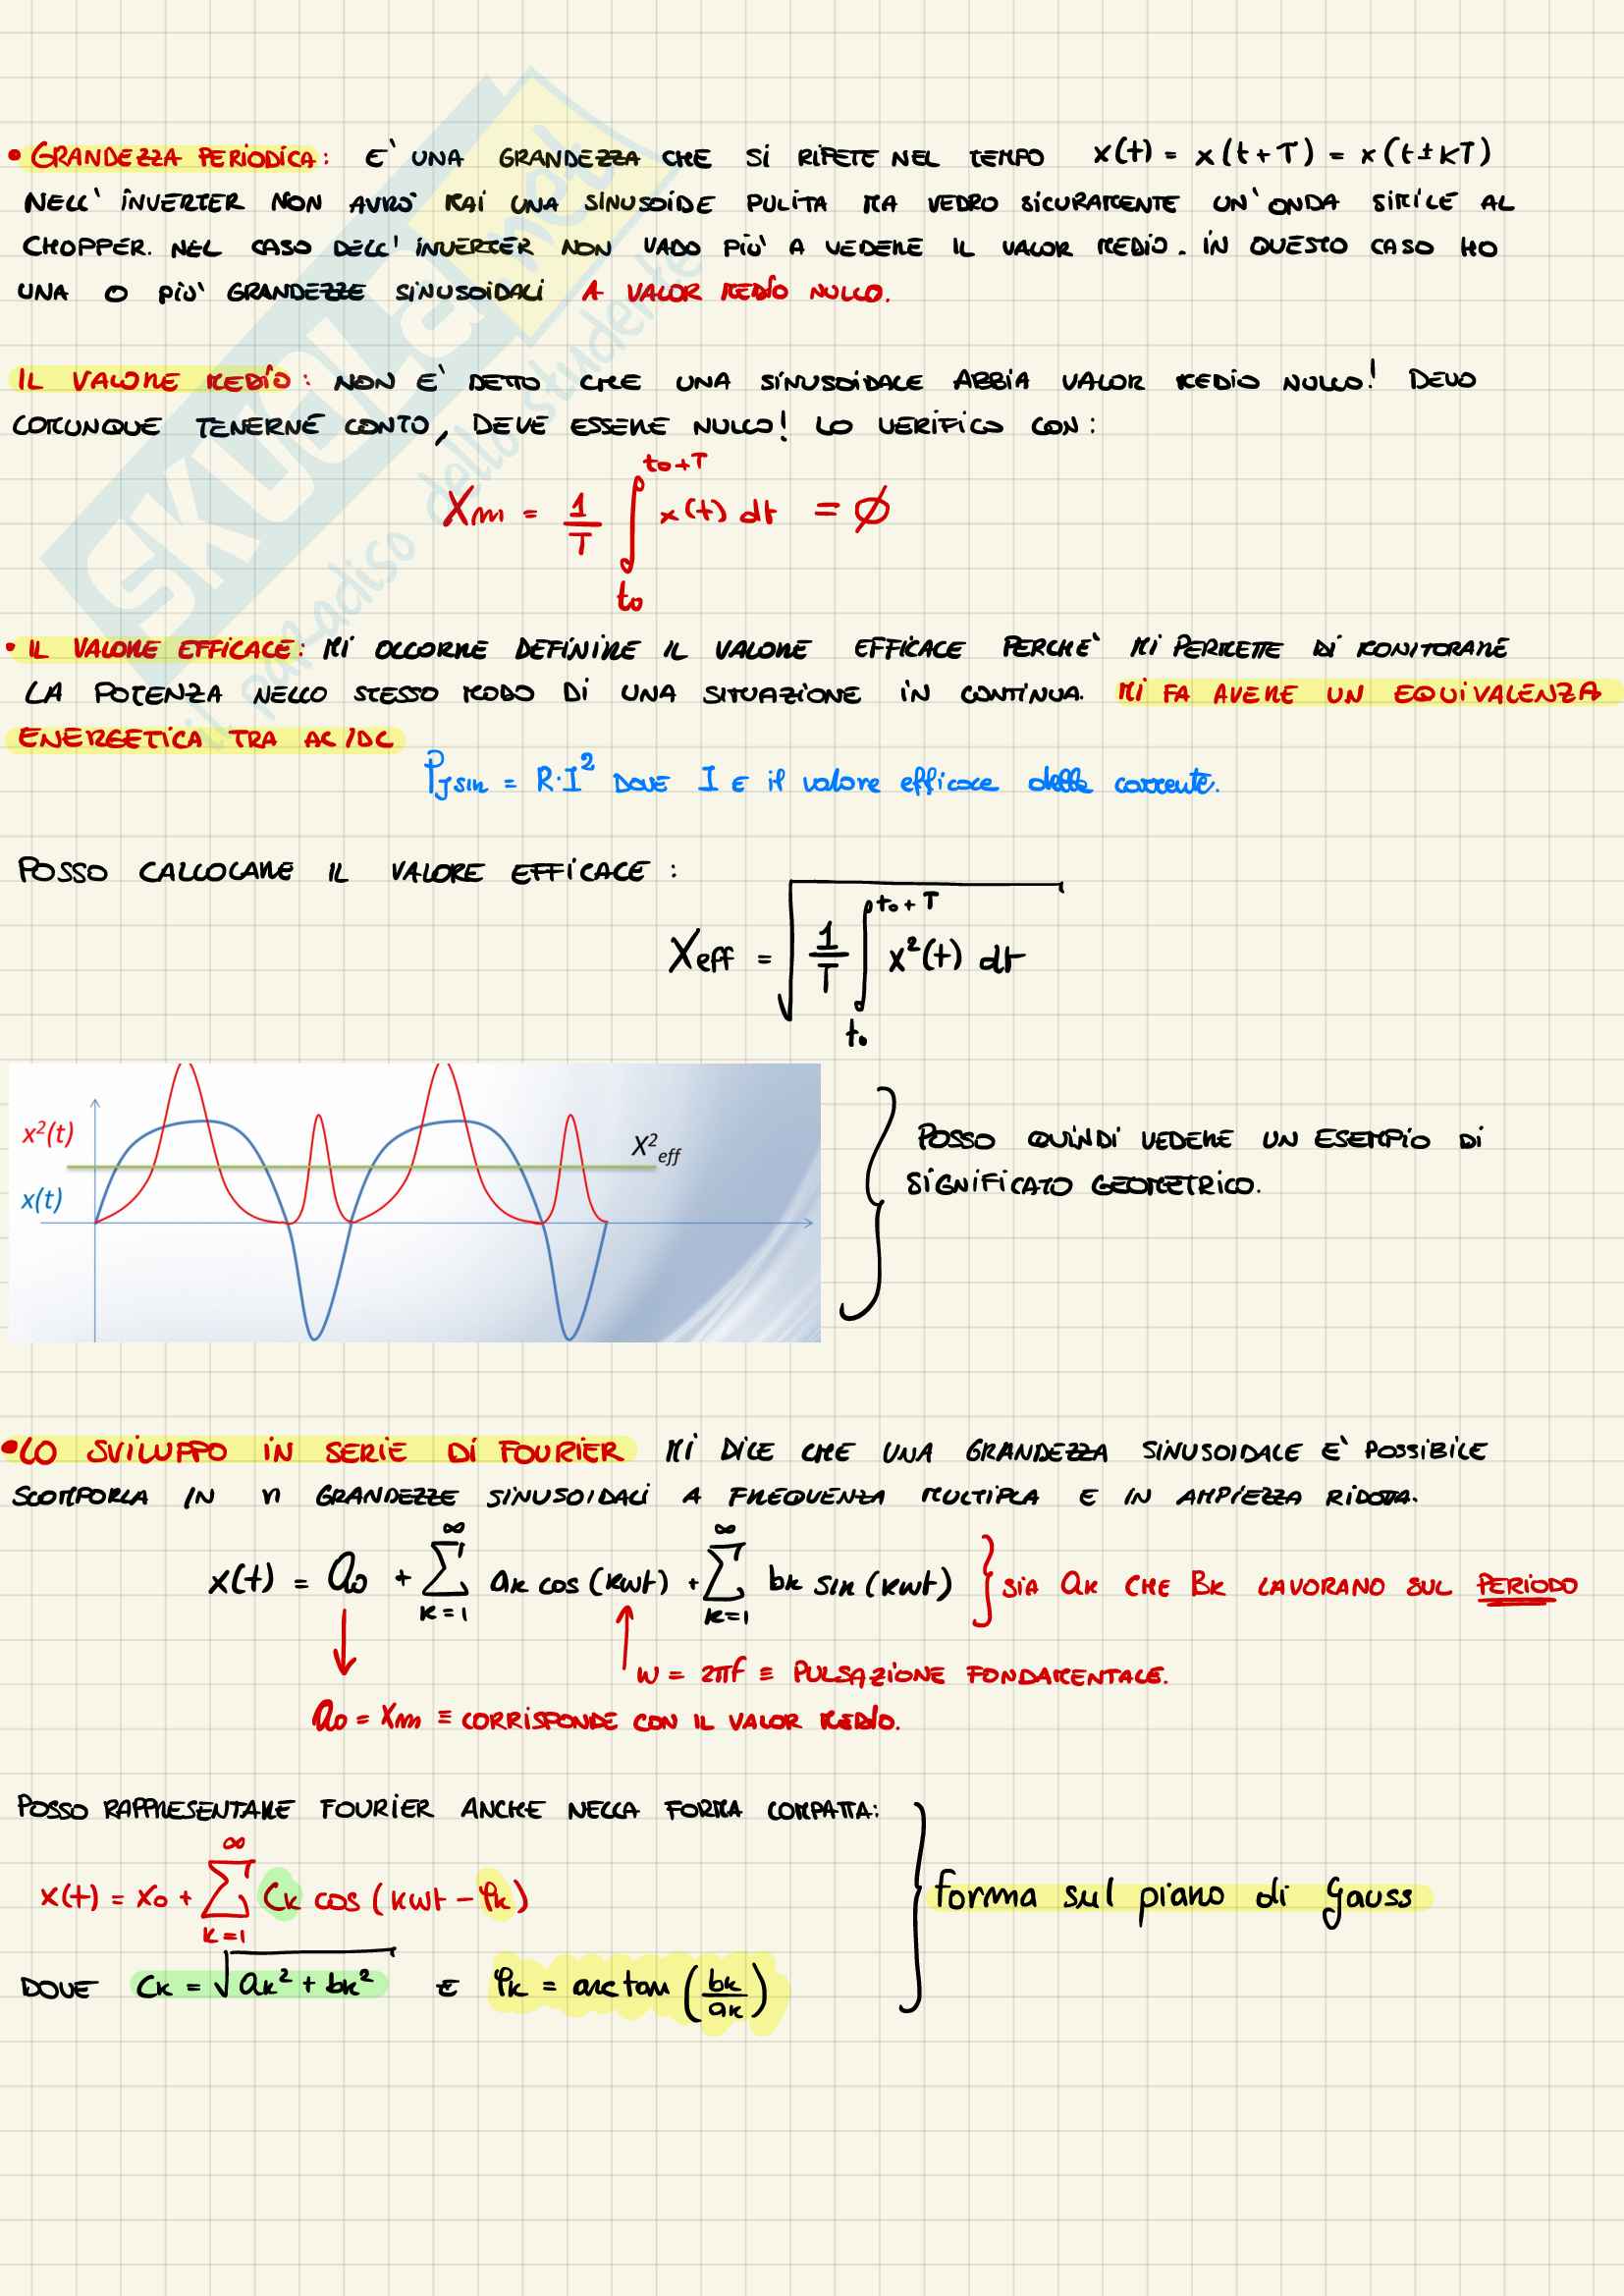 • GRANDEZZA PERIODICA: E' UNA GRANDEZZA CHE SI RIPETE NEL TEMPO x(t) = x(t+T) = x(t±kT)
NELL' INVERTER NON AVRO' MAI UNA SINUSOIDE PULITA MA VEDRO SICURAMENTE UN'ONDA SIMILE AL
CHOPPER. NEL CASO DELL' INVERTER NON VADO PIU' A VEDERE IL VALOR MEDIO. IN QUESTO CASO HO
UNA O PIU' GRANDEZZE SINUSOIDALI A VALOR MEDIO NULLO.
IL VALORE MEDIO: NON E' DETTO CHE UNA SINUSOIDALE ABBIA VALOR MEDIO NULLO! DEVO
COMUNQUE TENERNE CONTO, DEVE ESSERE NULLO! LO VERIFICO CON:
Xm = 1/T ∫ t0 t0+T x(t) dt = ∅
• IL VALORE EFFICACE: MI OCCORRE DEFINIRE IL VALORE EFFICACE PERCHE' MI PERMETTE DI MONITORARE
LA POTENZA NELLO STESSO MODO DI UNA SITUAZIONE IN CONTINUA. MI FA AVERE UN EQUIVALENZA
ENERGETICA TRA AC/DC
PJsin = R·I² DOVE I E il valore efficace della corrente.
POSSO CALCOLARE IL VALORE EFFICACE:
Xeff = √(1/T ∫ t0 t0+T x²(t) dt)
x²(t)
X²eff
x(t)
POSSO QUINDI VEDERE UN ESEMPIO DI
SIGNIFICATO GEOMETRICO.
• LO SVILUPPO IN SERIE DI FOURIER MI DICE CHE UNA GRANDEZZA SINUSOIDALE E' POSSIBILE
SCOMPORLA IN n GRANDEZZE SINUSOIDALI A FREQUENZA MULTIPLA E IN AMPIEZZA RIDOTTA.
x(t) = a0 + ∑ k=1 ∞ ak cos(kwt) + ∑ k=1 ∞ bk sin(kwt) } SIA ak CHE Bk LAVORANO SUL PERIODO
w = 2πf ≡ PULSAZIONE FONDAMENTALE.
a0 = Xm ≡ CORRISPONDE CON IL VALOR MEDIO.
POSSO RAPPRESENTARE FOURIER ANCHE NELLA FORMA COMPATTA:
x(t) = x0 + ∑ k=1 ∞ Ck cos(kwt - φk)
forma sul piano di Gauss
DOVE Ck = √(ak² + bk²) E φk = arctan (bk/ak)
SKUOLA.net
il paradiso dello studente